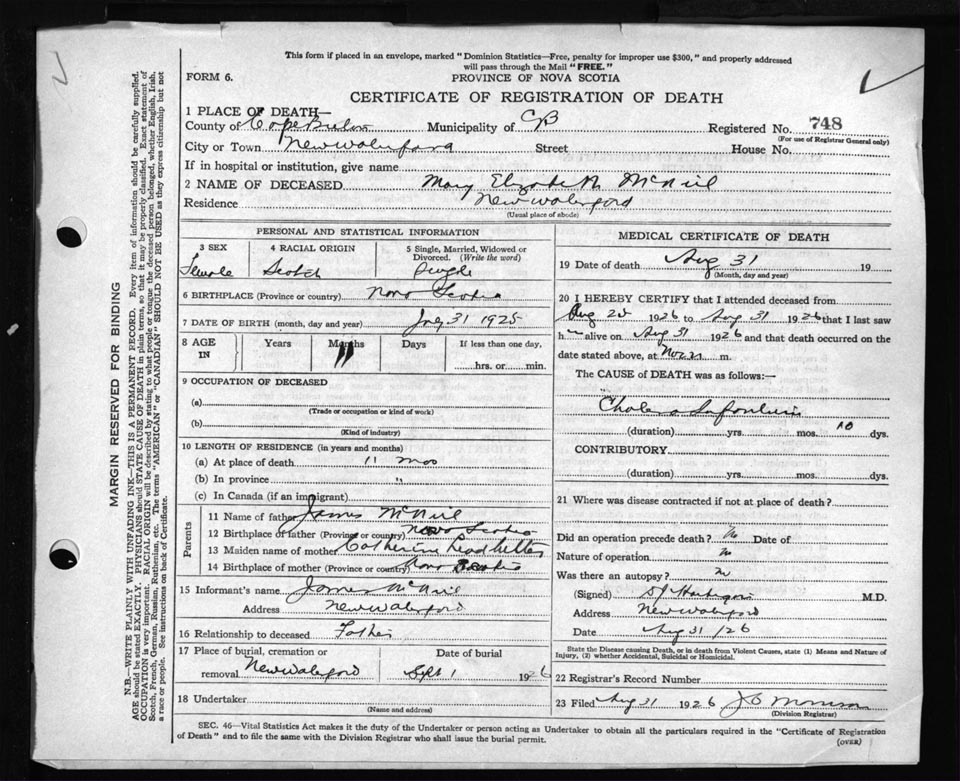 This form if placed in an envelope, marked "Dominion Statistics—Free, penalty for improper use $300," and properly addressed
will pass through the Mail "FREE."
FORM 6.
PROVINCE OF NOVA SCOTIA
CERTIFICATE OF REGISTRATION OF DEATH
1 PLACE OF DEATH—
County of Cape Breton Municipality of CB Registered No. 748
(For use of Registrar General only)
City or Town New Waterford Street House No.
If in hospital or institution, give name
2 NAME OF DECEASED Mary Elizabeth McNeil
Residence New Waterford
(Usual place of abode)
PERSONAL AND STATISTICAL INFORMATION
3 SEX 4 RACIAL ORIGIN 5 Single, Married, Widowed or Divorced. (Write the word)
Female Scotch Single
6 BIRTHPLACE (Province or country) Nova Scotia
7 DATE OF BIRTH (month, day and year) 31 1925
8 AGE IN Years Months Days If less than one day,
11 hrs. or min.
9 OCCUPATION OF DECEASED
(a)
(Trade or occupation or kind of work)
(b)
(Kind of industry)
10 LENGTH OF RESIDENCE (in years and months)
(a) At place of death 11 mos
(b) In province "
(c) In Canada (if an immigrant)
Parents
11 Name of father James McNeil
12 Birthplace of father (Province or country) Nova Scotia
13 Maiden name of mother Catherine Leadbetter
14 Birthplace of mother (Province or country) Nova Scotia
15 Informant's name James McNeil
Address New Waterford
16 Relationship to deceased Father
17 Place of burial, cremation or Date of burial
removal New Waterford Sept 1 1926
18 Undertaker
(Name and address)
MEDICAL CERTIFICATE OF DEATH
19 Date of death Aug 31 19
(Month, day and year)
20 I HEREBY CERTIFY that I attended deceased from
Aug 20 1926 to Aug 31 1926 that I last saw
h alive on Aug 31 1926 and that death occurred on the
date stated above, at Noon m.
The CAUSE of DEATH was as follows:—
Cholera Infantum
(duration) yrs. mos. 10 dys.
CONTRIBUTORY
(duration) yrs. mos. dys.
21 Where was disease contracted if not at place of death?
Did an operation precede death? No Date of
Nature of operation No
Was there an autopsy? No
(Signed) M.D.
Address New Waterford
Date Aug 31/26
State the Disease causing Death, or in death from Violent Causes, state (1) Means and Nature of
Injury, (2) whether Accidental, Suicidal or Homicidal.
22 Registrar's Record Number
23 Filed Aug 31 1926 J O Morrison
(Division Registrar)
SEC. 46—Vital Statistics Act makes it the duty of the Undertaker or person acting as Undertaker to obtain all the particulars required in the "Certificate of Registration
of Death" and to file the same with the Division Registrar who shall issue the burial permit.
(OVER)
MARGIN RESERVED FOR BINDING
N.B.—WRITE PLAINLY WITH UNFADING INK—THIS IS A PERMANENT RECORD. Every item of information should be carefully supplied.
AGE should be stated EXACTLY. PHYSICIANS should STATE CAUSE OF DEATH in plain terms, so that it may be properly classified. Exact statement of
OCCUPATION is very important. RACIAL ORIGIN will be described by stating to what people or tongue the deceased person belonged, whether English, Irish,
Scotch, French, German, Russian, Ruthenian, etc. The terms "AMERICAN" or "CANADIAN" SHOULD NOT BE USED as they express citizenship but not
a race or people. See instructions on back of Certificate.